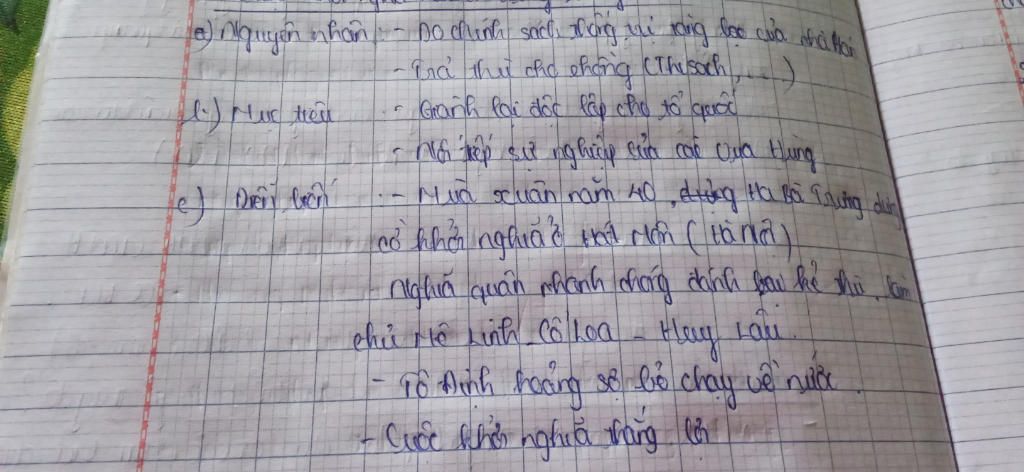 a) Nguyên nhân - Do chính sách thống trị tàng bạo của nhà Hán
- Trả thù cho chồng (Thi sách, ...)
b.) Mục tiêu - Giành lại độc lập cho tổ quốc
- Nối tiếp sự nghiệp của các Vua Hùng
c) Diễn biến - Mùa xuân năm 40, Hai Bà Trưng dựng
cờ khởi nghĩa ở Hát Môn (Hà Nội)
- Nghĩa quân nhanh chóng đánh bại kẻ thù, làm
chủ Mê Linh - Cổ Loa - Luy Lâu.
- Tô Định hoảng sợ bỏ chạy về nước.
- Cuộc khởi nghĩa thắng lợi